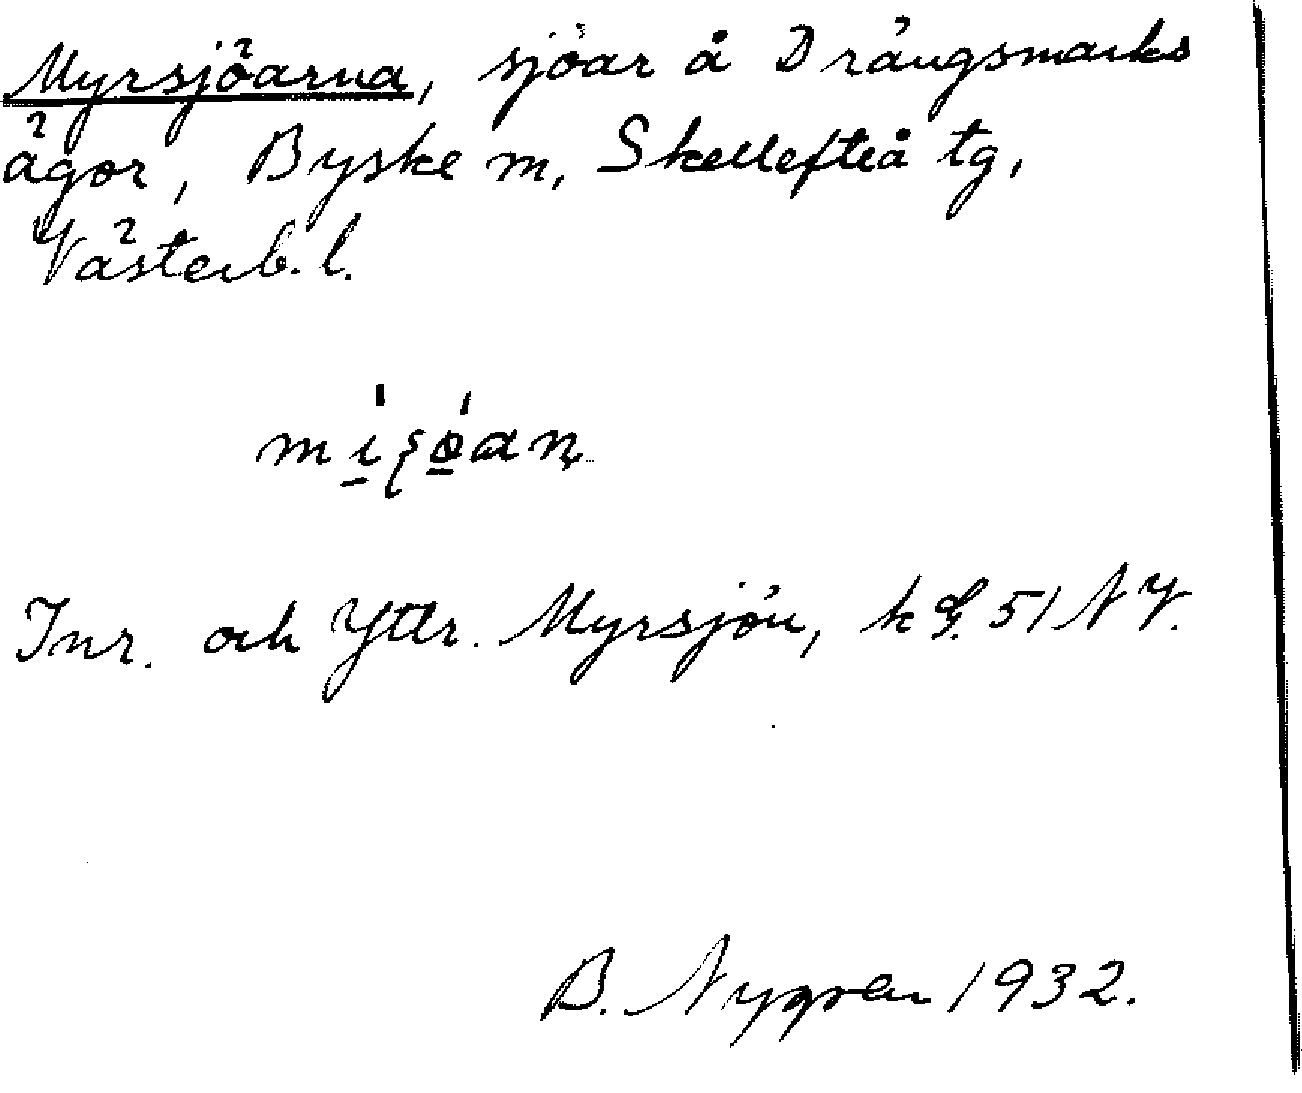 Myrsjöarna, sjöar å Drängsmarks
ägor, Byske sn, Skellefteå tg,
Västerb. l.
Inr. och Yttr. Myrsjön, k 51 NV.
B. Nygren 1932.